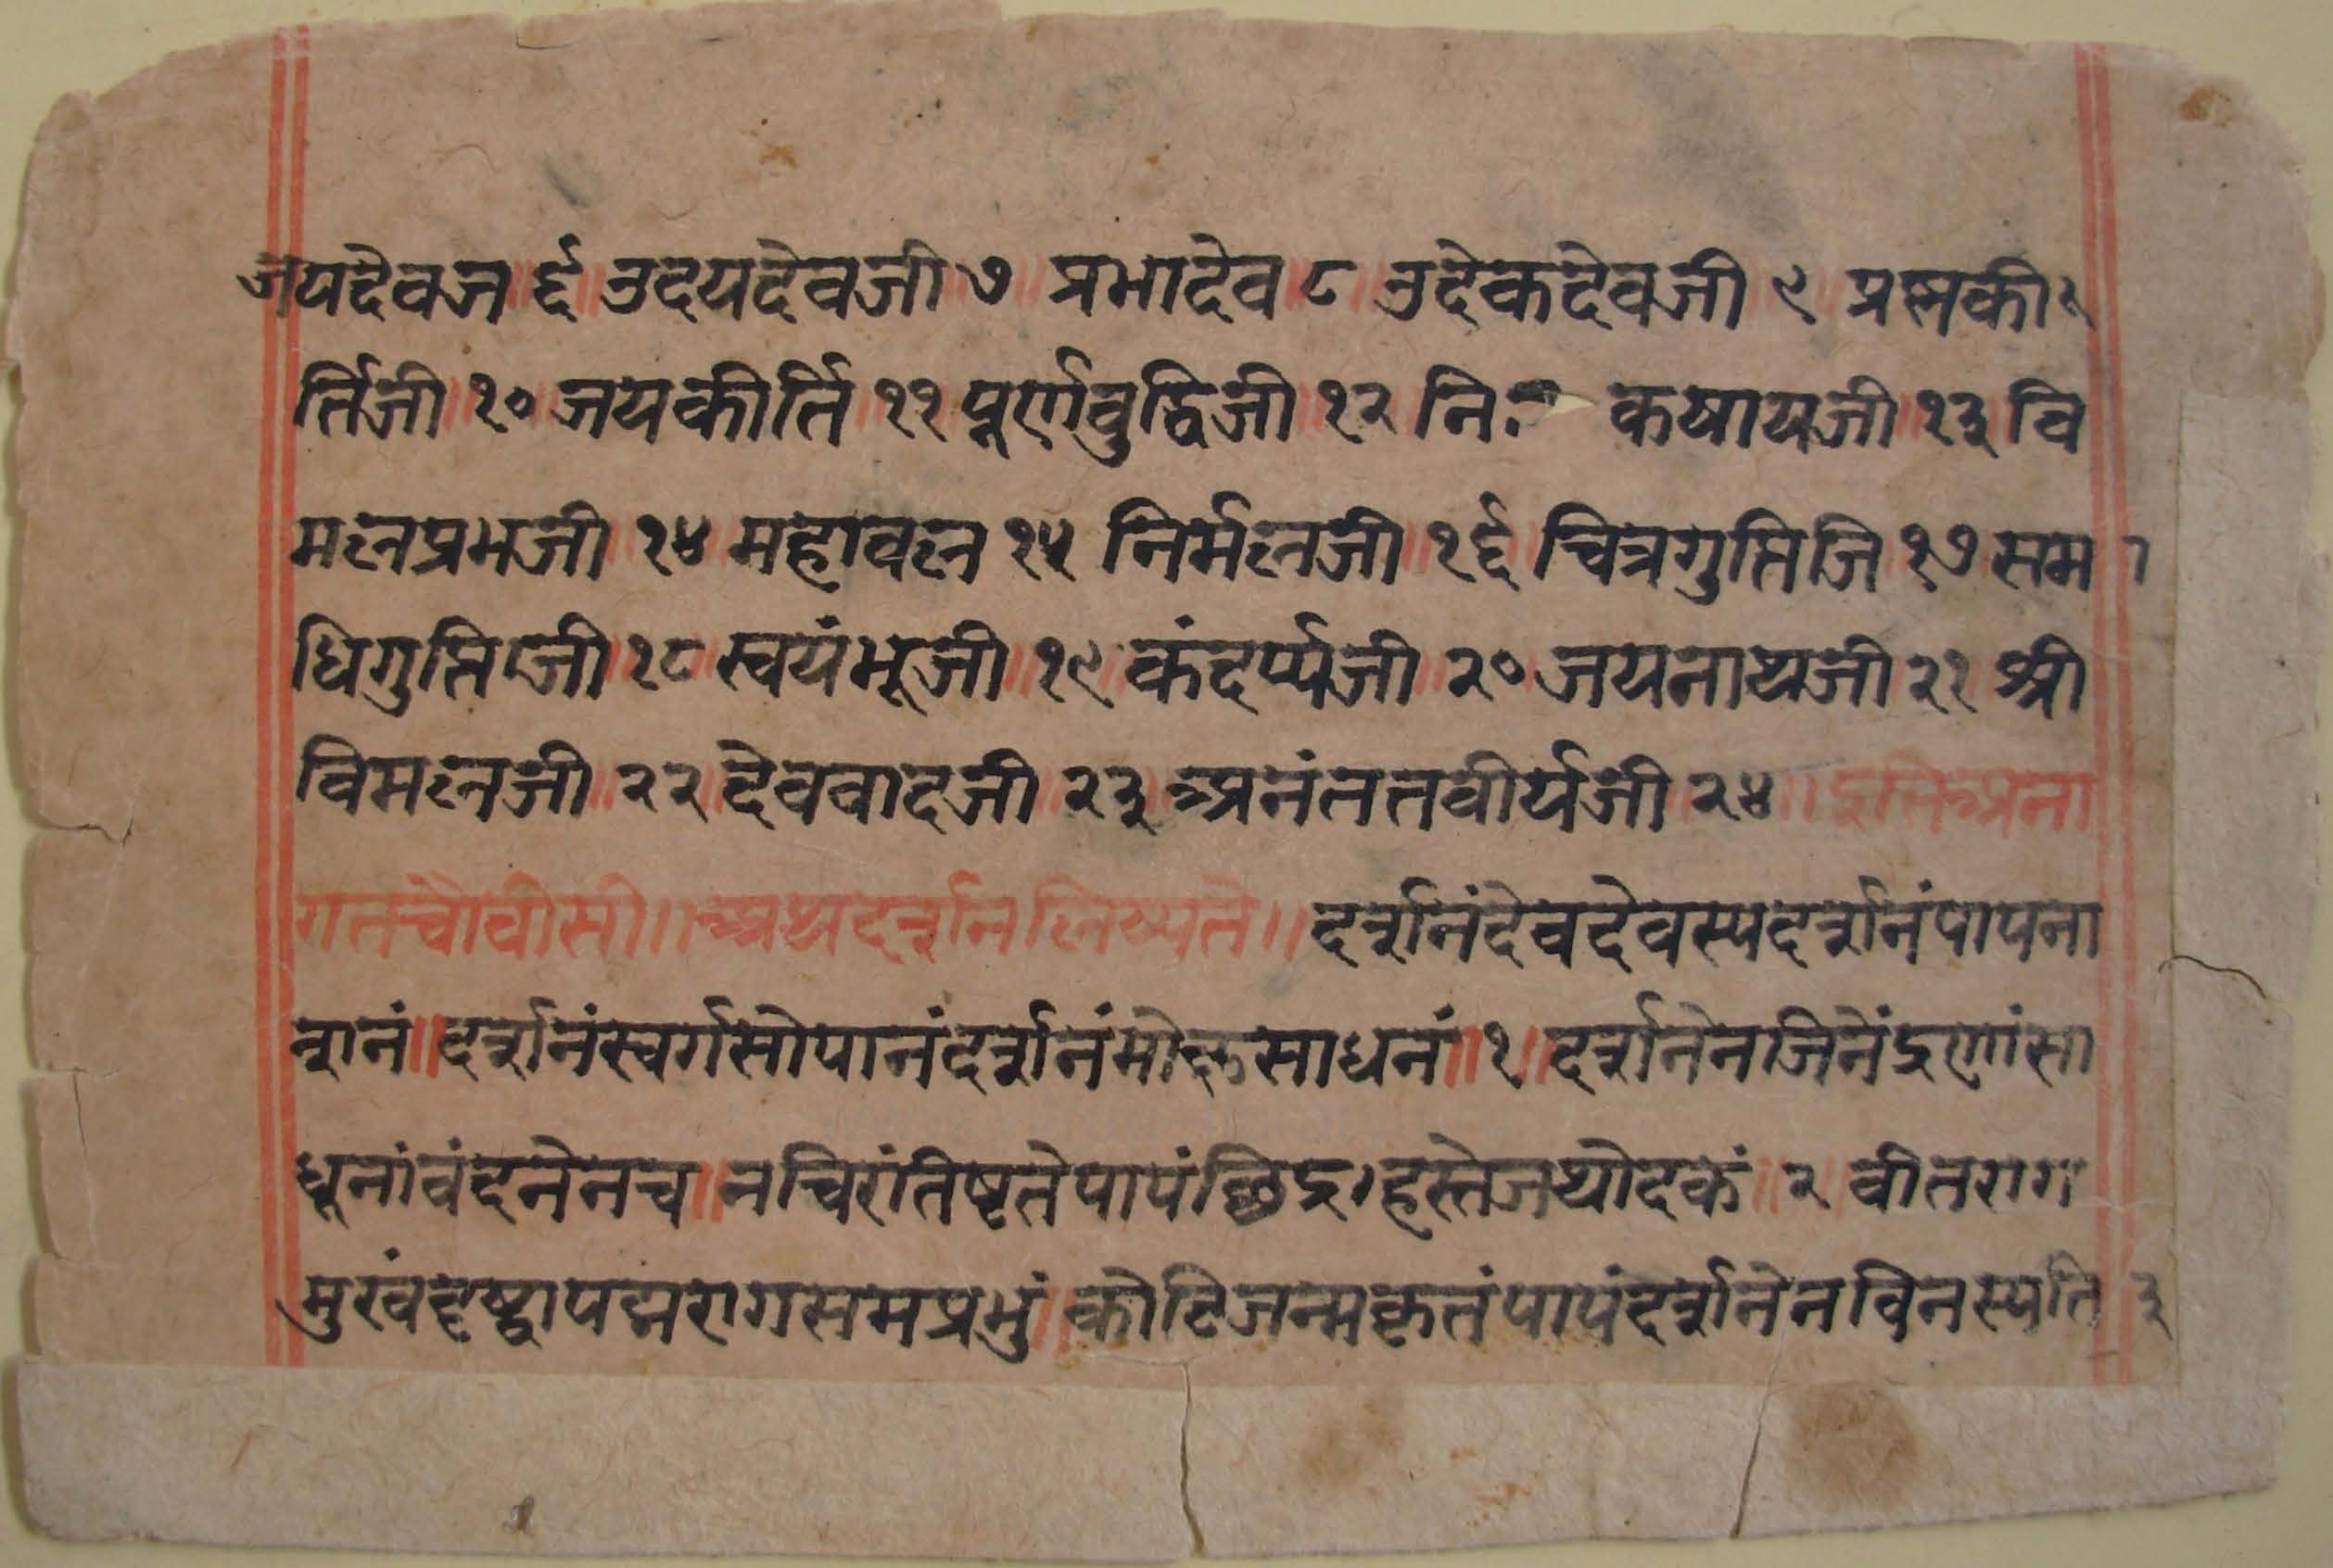 जयदेवज ॥ ६ ॥ उदयदेवजी ७ ॥ प्रभादेव ॥ ८ ॥ उदेकदेवजी ॥ ९ ॥ प्रस्नकी
र्तिजी ॥ १० ॥ जयकीर्ति ॥ ११ ॥ पूर्णवुद्धिजी ॥ १२ ॥ नि कषायजी ॥ १३ ॥ वि
मलप्रभजी ॥ १४ ॥ महावल ॥ १५ ॥ निर्मलजी ॥ १६ ॥ चित्रगुप्तिजि ॥ १७ ॥ समा
धिगुप्तिजी ॥ १८ ॥ स्वयंभूजी ॥ १९ ॥ कंदर्प्पजी ॥ २० ॥ जयनाथजी ॥ २१ ॥ श्री
विमलजी ॥ २२ ॥ देववादजी ॥ २३ ॥ अनंततवीर्यजी ॥ २४ ॥ इतिअना
गतचौवीसी ॥ अथदर्शनलिख्यते ॥ दर्शनंदेवदेवस्यदर्शनंपापना
शनं ॥ दर्शनंस्वर्गसोपानंदर्शनंमोक्षसाधनं ॥ १ ॥ दर्शनेनजिनेंद्रणांसा
धूनांवंदनेनच ॥ नचिरांतिष्टतेपापंछिद्रहस्तेजथोदकं ॥ २ ॥ वीतराग
मुखंदृष्ट्वापद्मरागसमप्रभुं ॥ कोटिजन्मकृतंपापंदर्शनेनविनस्यति ३